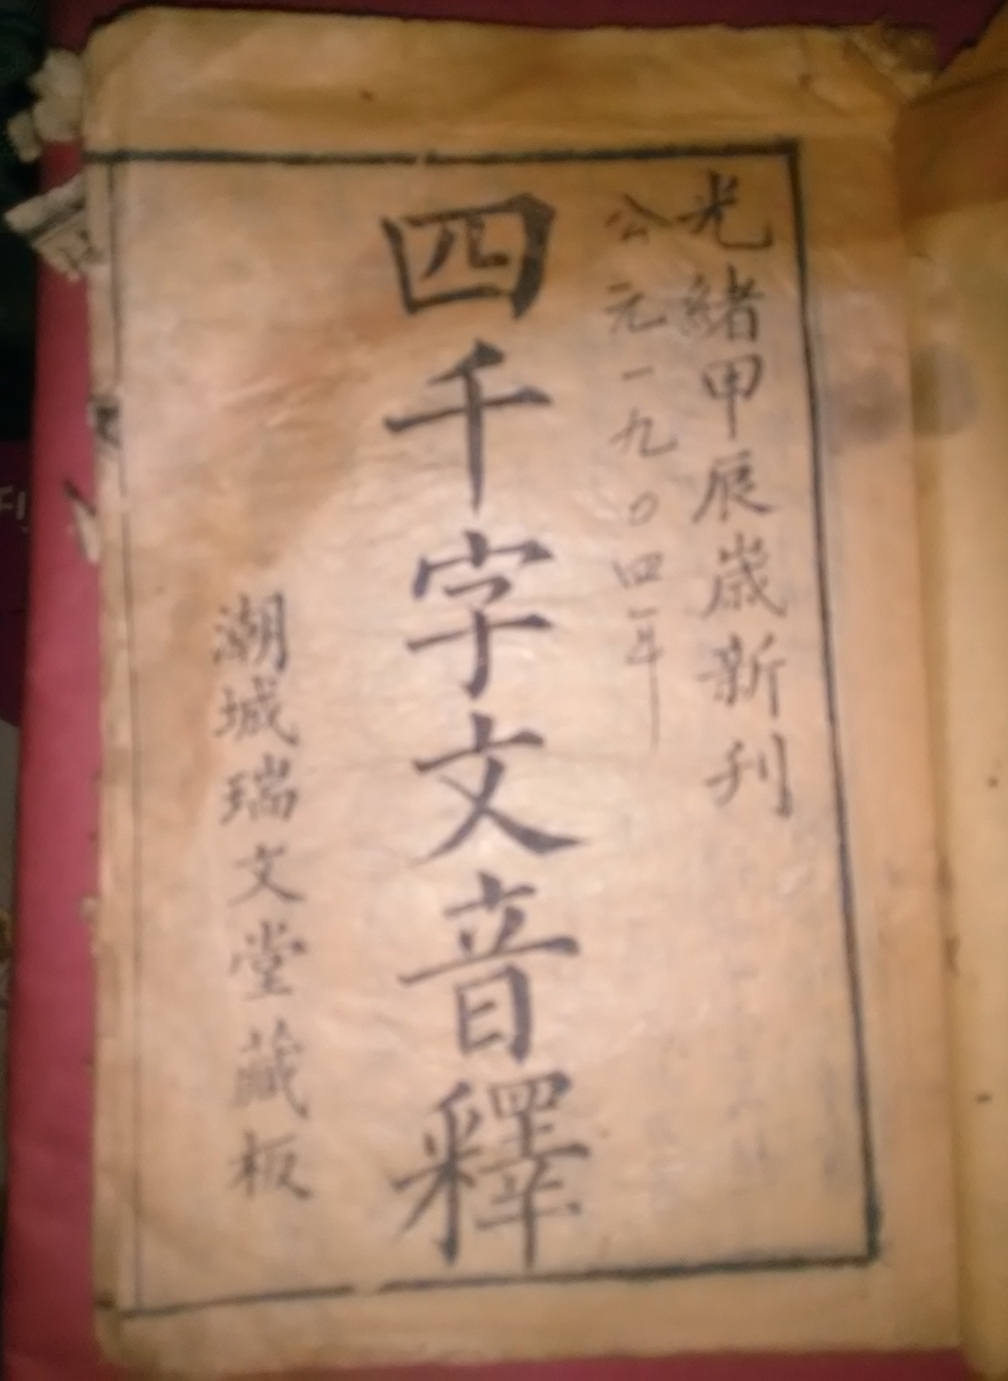 光緒甲辰歲新刊
公元一九〇四年
四千字文音釋
潮城瑞文堂藏板
刋